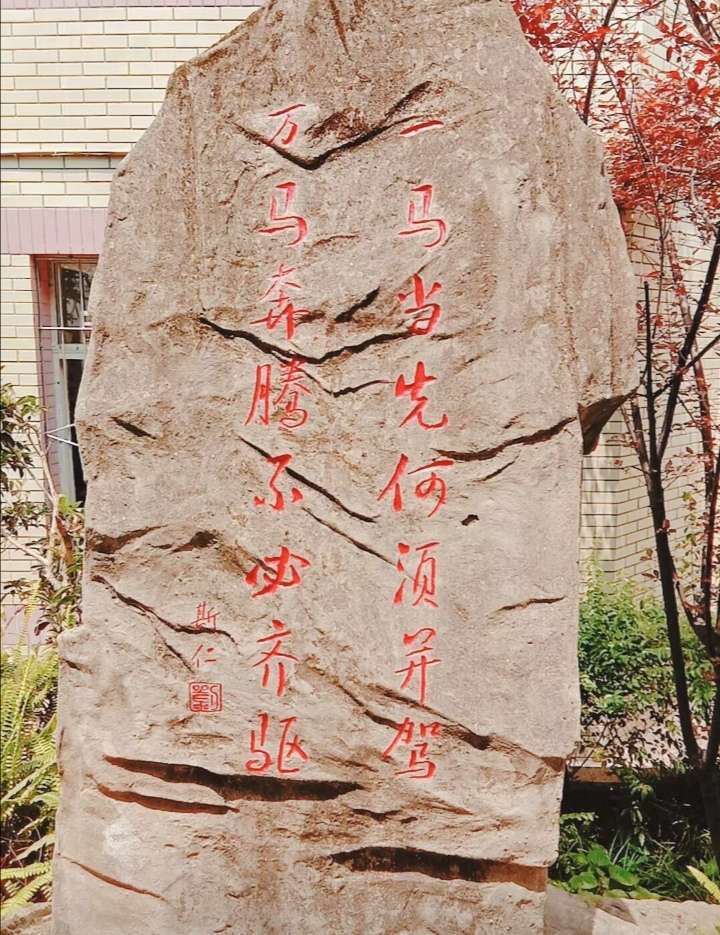 一马当先何须并驾
万马奔腾不必齐驱
斯仁
劉